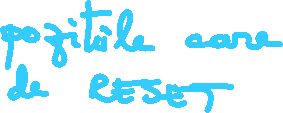 pozitiile care
de RESET